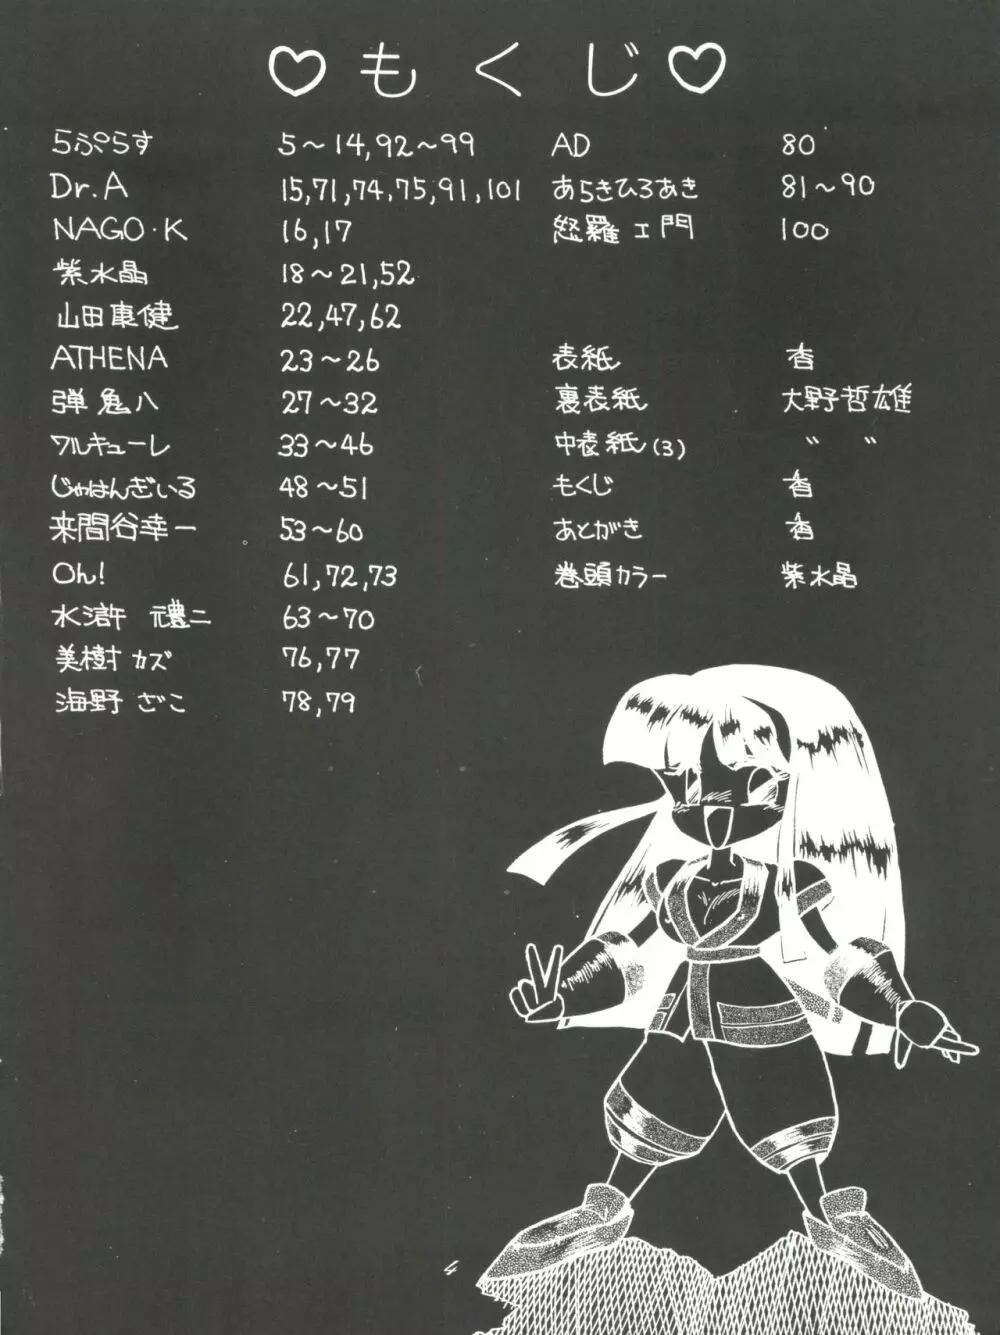 ♡もくじ♡
らぷらす 5～14,92～99
Dr.A 15,71,74,75,91,101
NAGO·K 16,17
紫水晶 18～21,52
山田康健 22,47,62
ATHENA 23～26
弾鬼八 27～32
ワルキューレ 33～46
じゃはんざいる 48～51
来間谷幸一 53～60
Oh! 61,72,73
水滸 元禮二 63～70
美樹カズ 76,77
海野ざこ 78,79
AD 80
あらきひろあき 81～90
怒羅エ門 100
表紙 香
裏表紙 大野哲雄
中表紙(3) 〃 〃
もくじ 香
あとがき 香
巻頭カラー 紫水晶
4